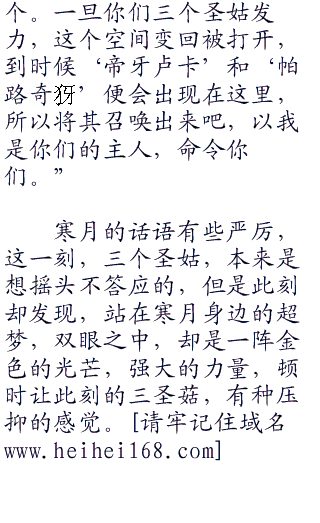 个。一旦你们三个圣姑发
力，这个空间变回被打开，
到时候‘帝牙卢卡’和‘帕
路奇犽’便会出现在这里，
所以将其召唤出来吧，以我
是你们的主人，命令你
们。”
寒月的话语有些严厉，
这一刻，三个圣姑，本来是
想摇头不答应的，但是此刻
却发现，站在寒月身边的超
梦，双眼之中，却是一阵金
色的光芒，强大的力量，顿
时让此刻的三圣菇，有种压
抑的感觉。[请牢记住域名
www.heihei168.com]